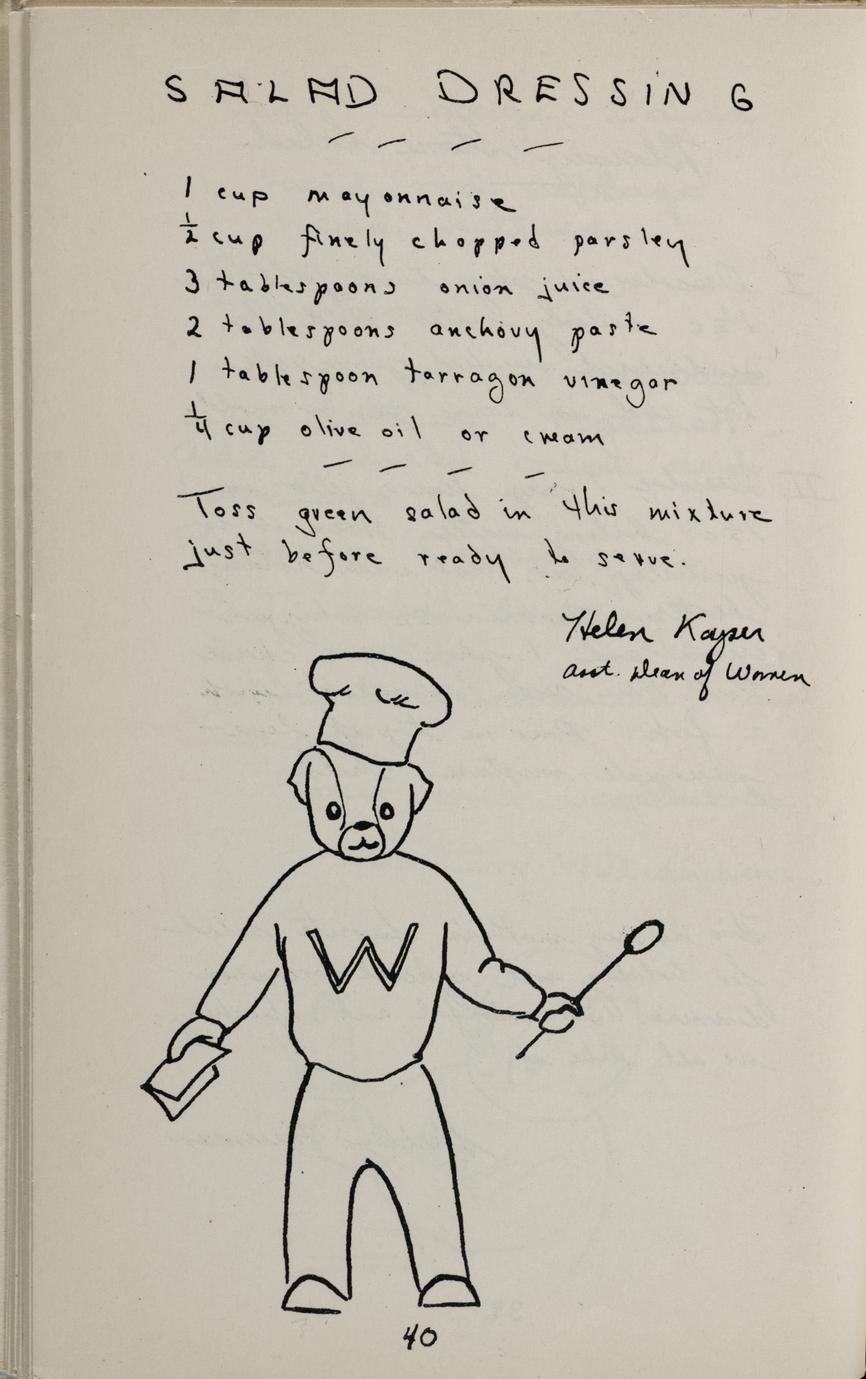 SALAD DRESSING
1 cup mayonnaise
1/2 cup finely chopped parsley
3 tablespoons onion juice
2 tablespoons anchovy paste
1 tablespoon tarragon vinegar
1/4 cup olive oil or cream
Toss green salad in this mixture
just before ready to serve.
Helen Kayser
asst. Dean of Women
W
40